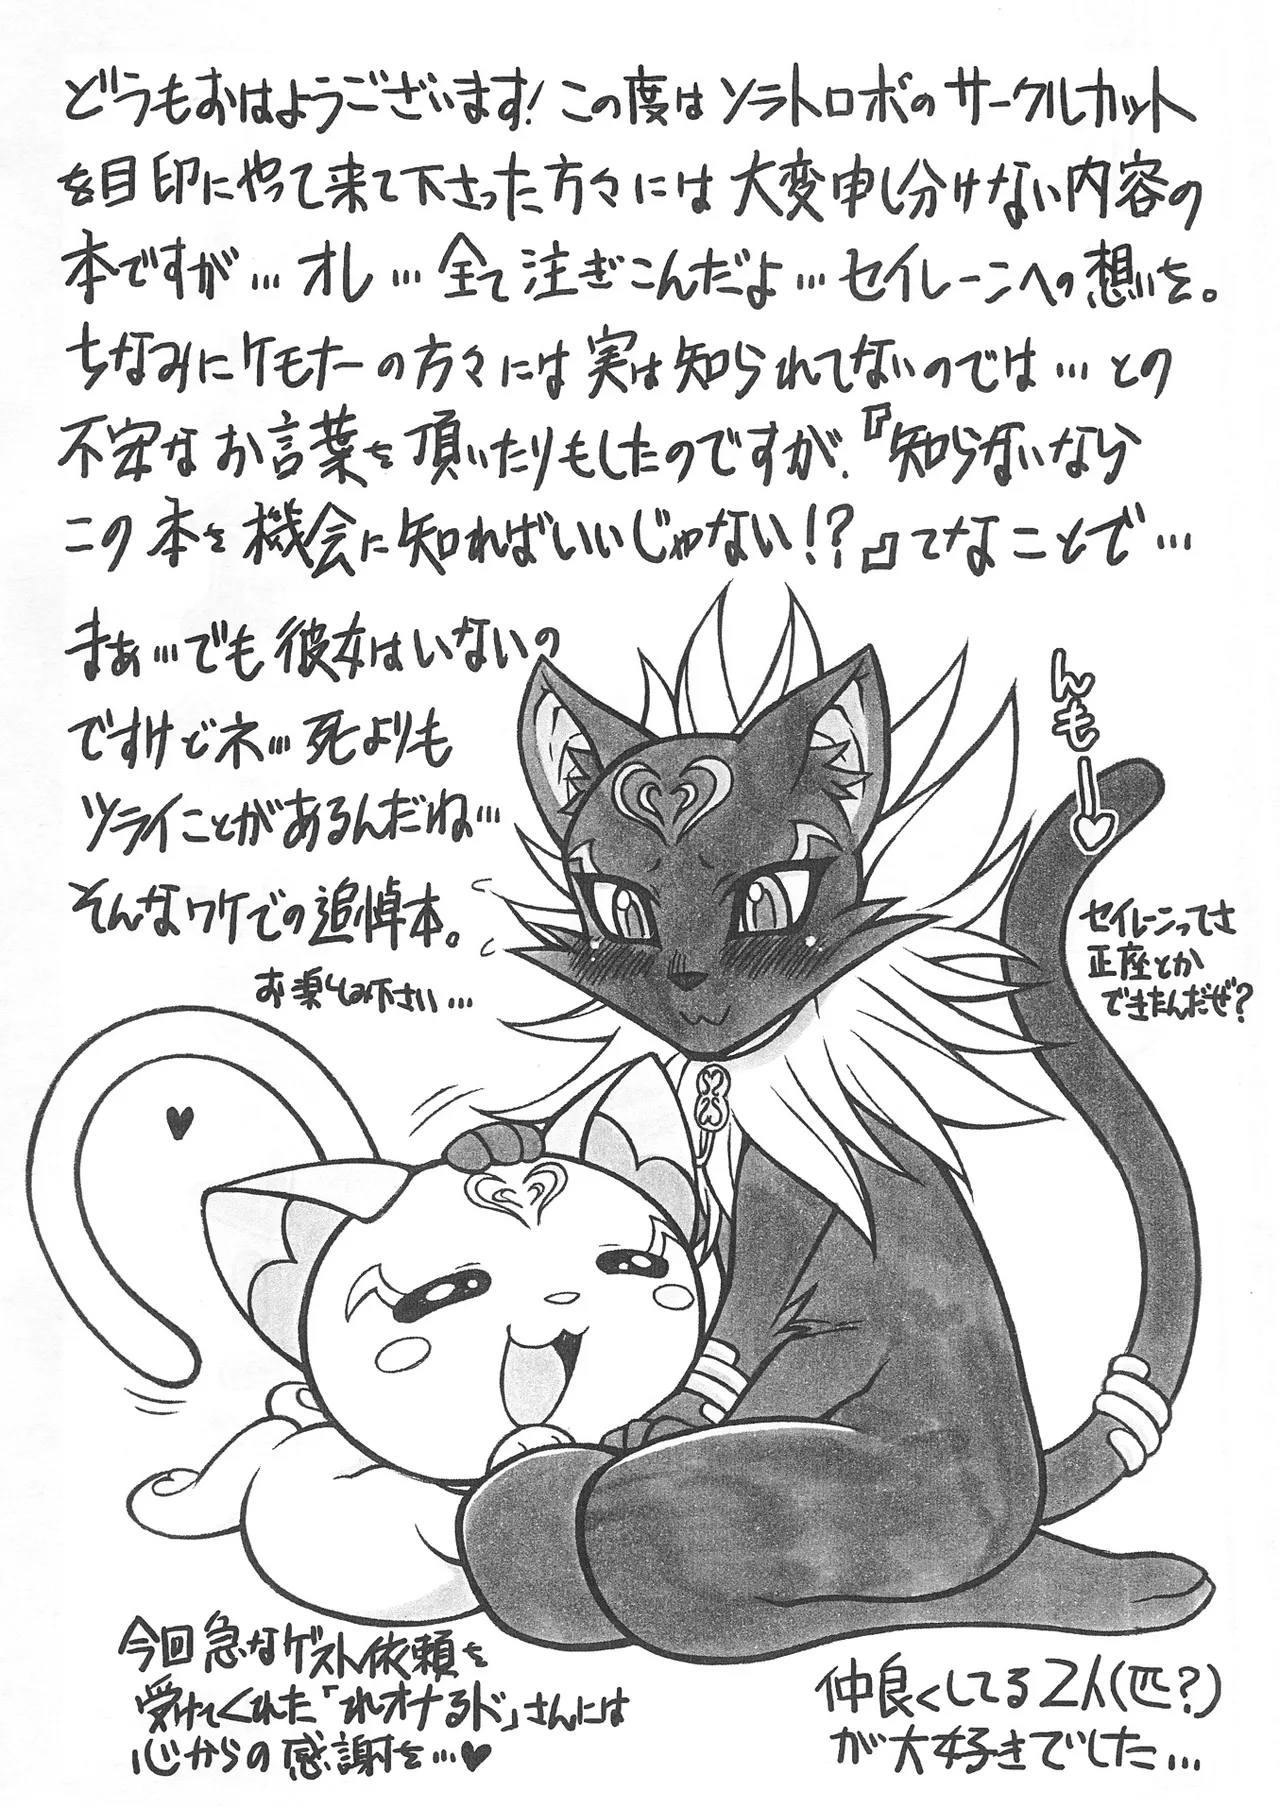 どうもおはようございます！この度はソラトロボのサークルカット
を目印にやって来て下さった方々には大変申し分けない内容の
本ですが…オレ…全て注ぎこんだよ…セイレーンへの想いを。
ちなみにケモナーの方々には実は知られてないのでは…との
不安なお言葉を頂いたりもしたのですが、『知らないなら
この本を機会に知ればいいじゃない！？』てなことで…
まぁ…でも彼女はいないの
ですけどネ…死よりも
ツライことがあるんだね…
そんなワケでの追悼本。
お楽しみ下さい…
んも→♡
セイレーンってさ
正座とか
できたんだぜ？
今回急なゲスト依頼を
受けてくれた「れオナるド」さんには
心からの感謝を…♥
仲良くしてる2人(匹？)
が大好きでした…